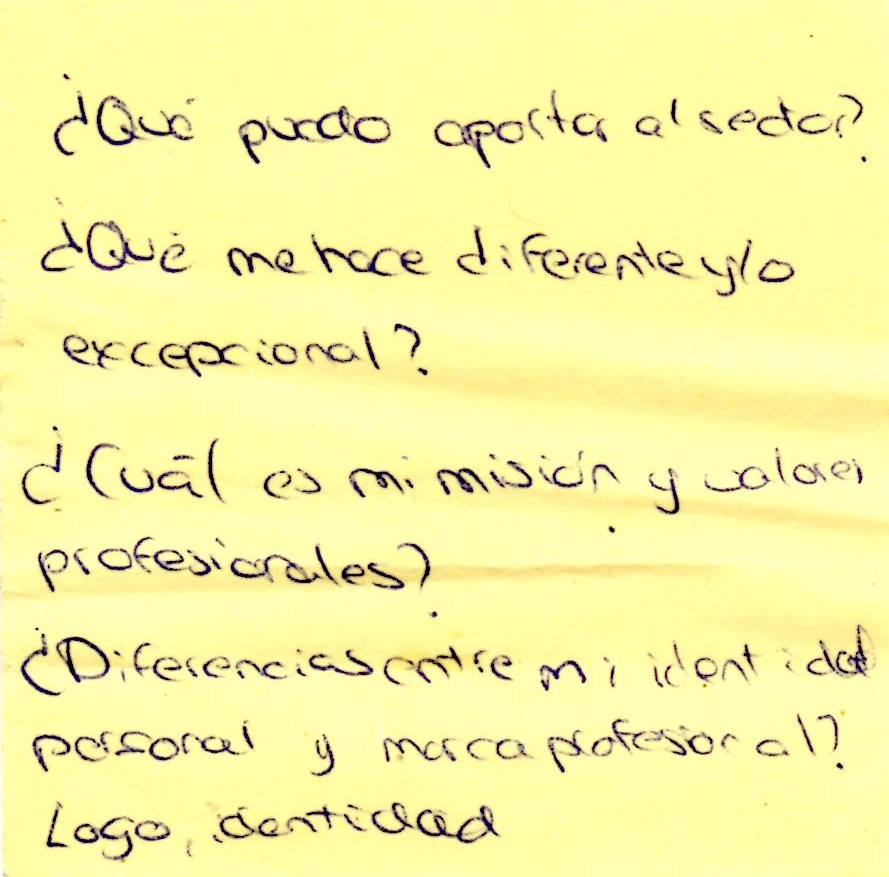 ¿Qué puedo aportar al sector?
¿Qué me hace diferente y/o
excepcional?
¿Cuál es mi misión y valores
profesionales?
¿Diferencias entre mi identidad
personal y marca profesional?
Logo, identidad